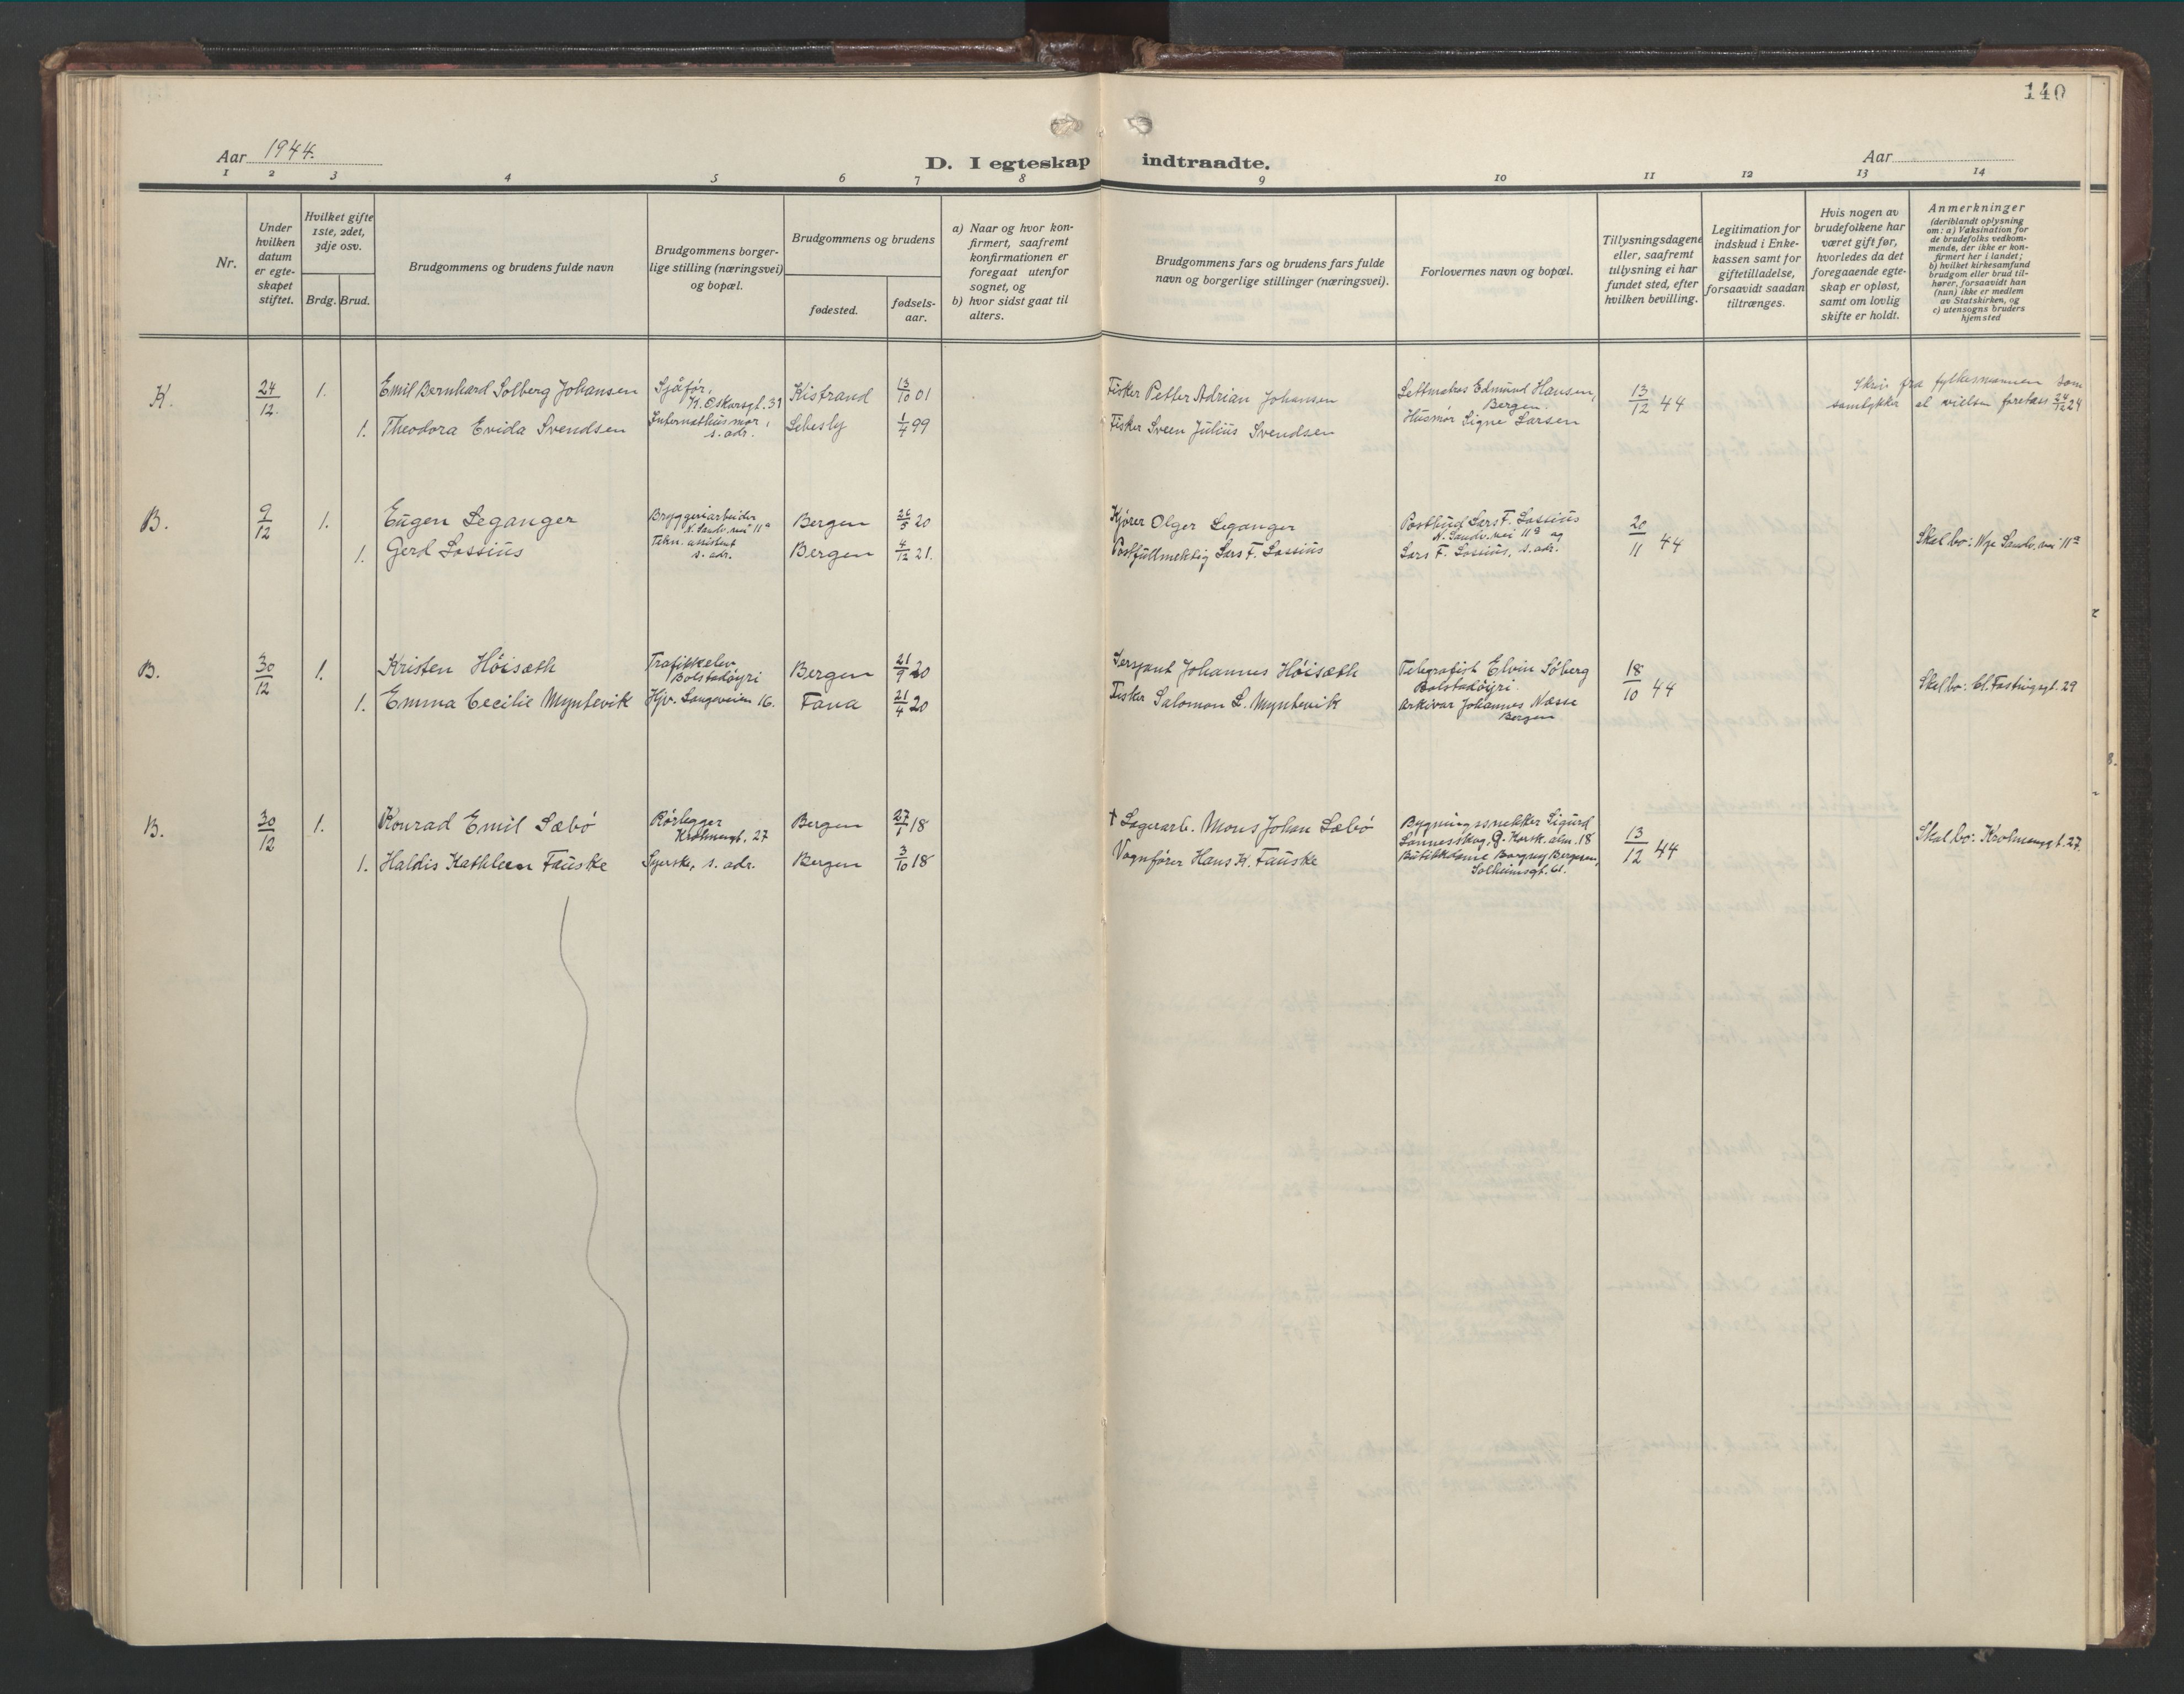 140
Aar 1944.
D. I egteskap indtraadte.
Aar
1 2 3 4 5 6 7 8 9 10 11 12 13 14
Nr.
Under
hvilken
datum
er egte-
skapet
stiftet.
Hvilket gifte
1ste, 2det,
3dje osv.
Brdg. Brud.
Brudgommens og brudens fulde navn
Brudgommens borger-
lige stilling (næringsvei)
og bopæl.
Brudgommens og brudens
fødested.
fødsels-
aar.
a) Naar og hvor kon-
firmert, saafremt
konfirmationen er
foregaat utenfor
sognet, og
b) hvor sidst gaat til
alters.
Brudgommens fars og brudens fars fulde
navn og borgerlige stillinger (næringsvei).
Forlovernes navn og bopæl.
Tillysningsdagene
eller, saafremt
tillysning ei har
fundet sted, efter
hvilken bevilling.
Legitimation for
indskud i Enke-
kassen samt for
giftetilladelse,
forsaavidt saadan
tiltrænges.
Hvis nogen av
brudefolkene har
været gift før,
hvorledes da det
foregaaende egte-
skap er opløst,
samt om lovlig
skifte er holdt.
Anmerkninger
(deriblandt oplysning
om: a) Vaksination for
de brudefolks vedkom-
mende, der ikke er kon-
firmert her i landet;
b) hvilket kirkesamfund
brudgom eller brud til-
hører, forsaavidt han
(hun) ikke er medlem
av Statskirken, og
c) utensogns bruders
hjemsted
K. 24/12. 1. Emil Bernhard Solberg Johansen
Sjåfør,
K. Oskarsgt. 31
Kistrand 13/10 01
Fisker Petter Adrian Johansen
Lettmatros Edmund Hansen,
Bergen
13/12 44
Skriv fra fylkesmannen som
samtykker at vielsen foretas 24/12 24
1. Theodora Evida Svendsen
Internathusmor,
s. adr.
Lebesby 1/4 99
Fisker Sveen Julius Svendsen
Husmor Signe Larsen
B. 9/12 1. Eugen Leganger
Bryggeriarbeider
N. Sandv. vei 11a
Bergen 26/5 20
Kjører Olger Leganger
Postbud Lars F. Lossius
N. Sandv. vei 11a og
20/11 44
Skal bo: Nye Sandv. vei 11a
1. Gerd Lossius
Tekn. assistent
s. adr.
Bergen 4/12 21.
Postfullmektig Lars F. Lossius
Lars F. Lossius, s. adr.
B. 30/12 1. Kristen Höisæth
Trafikkelev
Bolstadöyri
Bergen 21/9 20
Sersjant Johannes Höisæth
Telegrafist Elvin Söberg
Bolstadöyri.
18/10 44
Skal bo: Cl. Fastingsgt. 29
1. Emma Cecilie Myntevik
Hjv. Langeveien 16.
Fana 21/4 20
Fisker Salomon L. Myntevik
Arkivar Johannes Næsse
Bergen
B. 30/12 1. Konrad Emil Sæbö
Rörlegger
Krohnengt. 27
Bergen 27/1 18
† Lagerarb. Mons Johan Sæbö
Bygningssnekker Sigurd
Lönnesskog, G. Korsk. alm. 18
13/12 44
Skal bo: Krohnengt. 27.
1. Haldis Kathleen Fauske
Syerske, s. adr.
Bergen 3/10 18
Vognfører Hans K. Fauske
Butikkdame Borgny Bergesen,
Solheimsgt. 61.